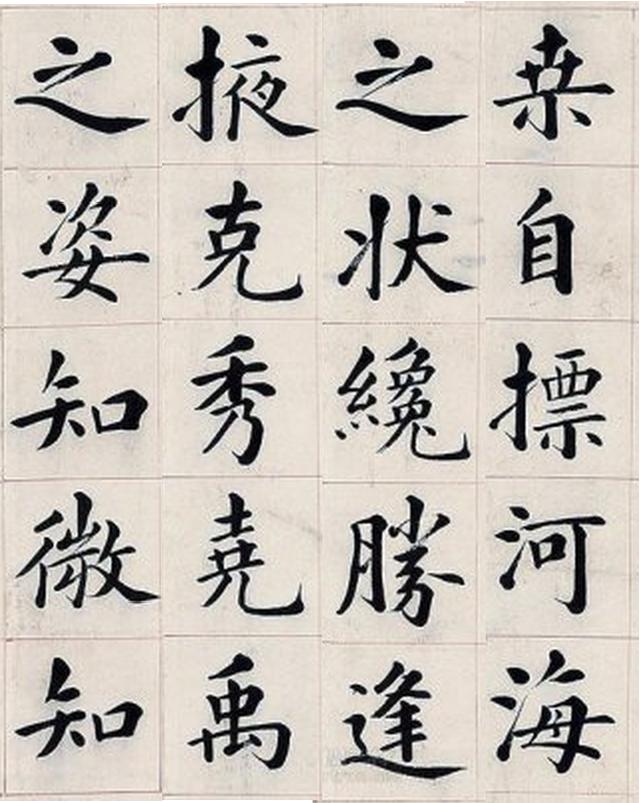 桒自摽河海
之状纔勝逢
掖克秀堯禹
之姿知微知